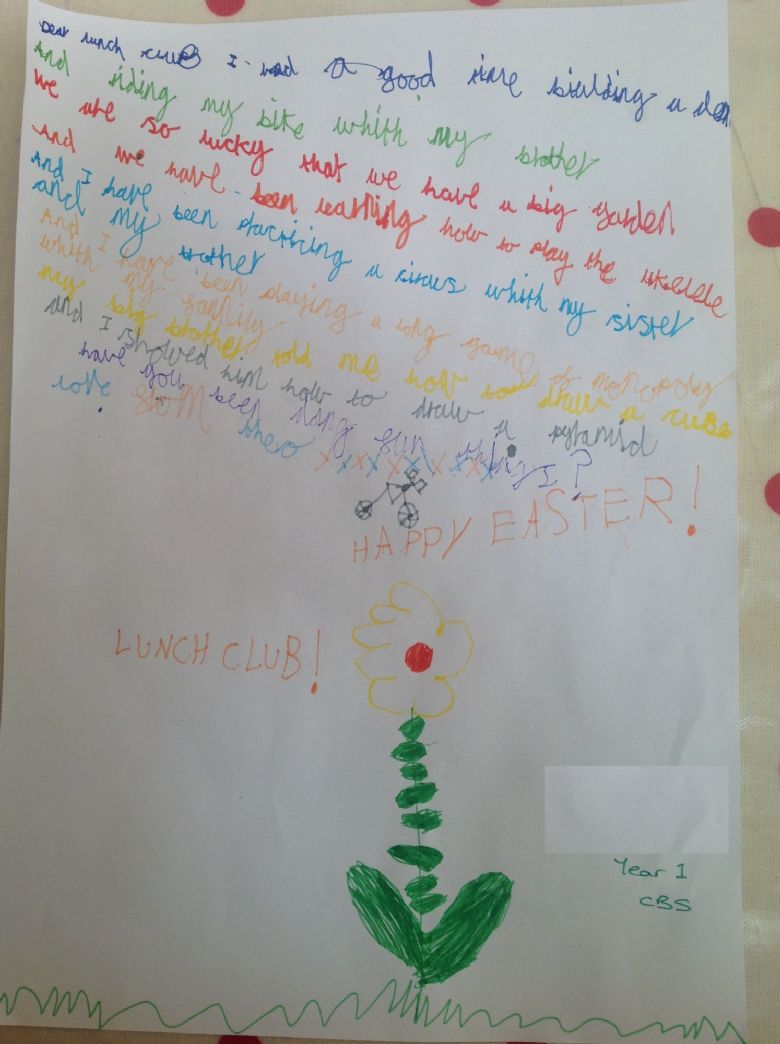 Dear lunch club I had a good time biulding a den
And riding my bike whith my brother
We are so lucky that we have a big garden
And we have been learning how to play the ukelele
And I have been practicing a circus whith my sister
and my brother
And I have been playing a long game of monopoly
whith my family
my big brother told me how to draw a cube
and I showed him how to draw a pyramid
have you been doing fun things?
love from theo xxxxxxxxx
HAPPY EASTER!
LUNCH CLUB!
Year 1
CBS